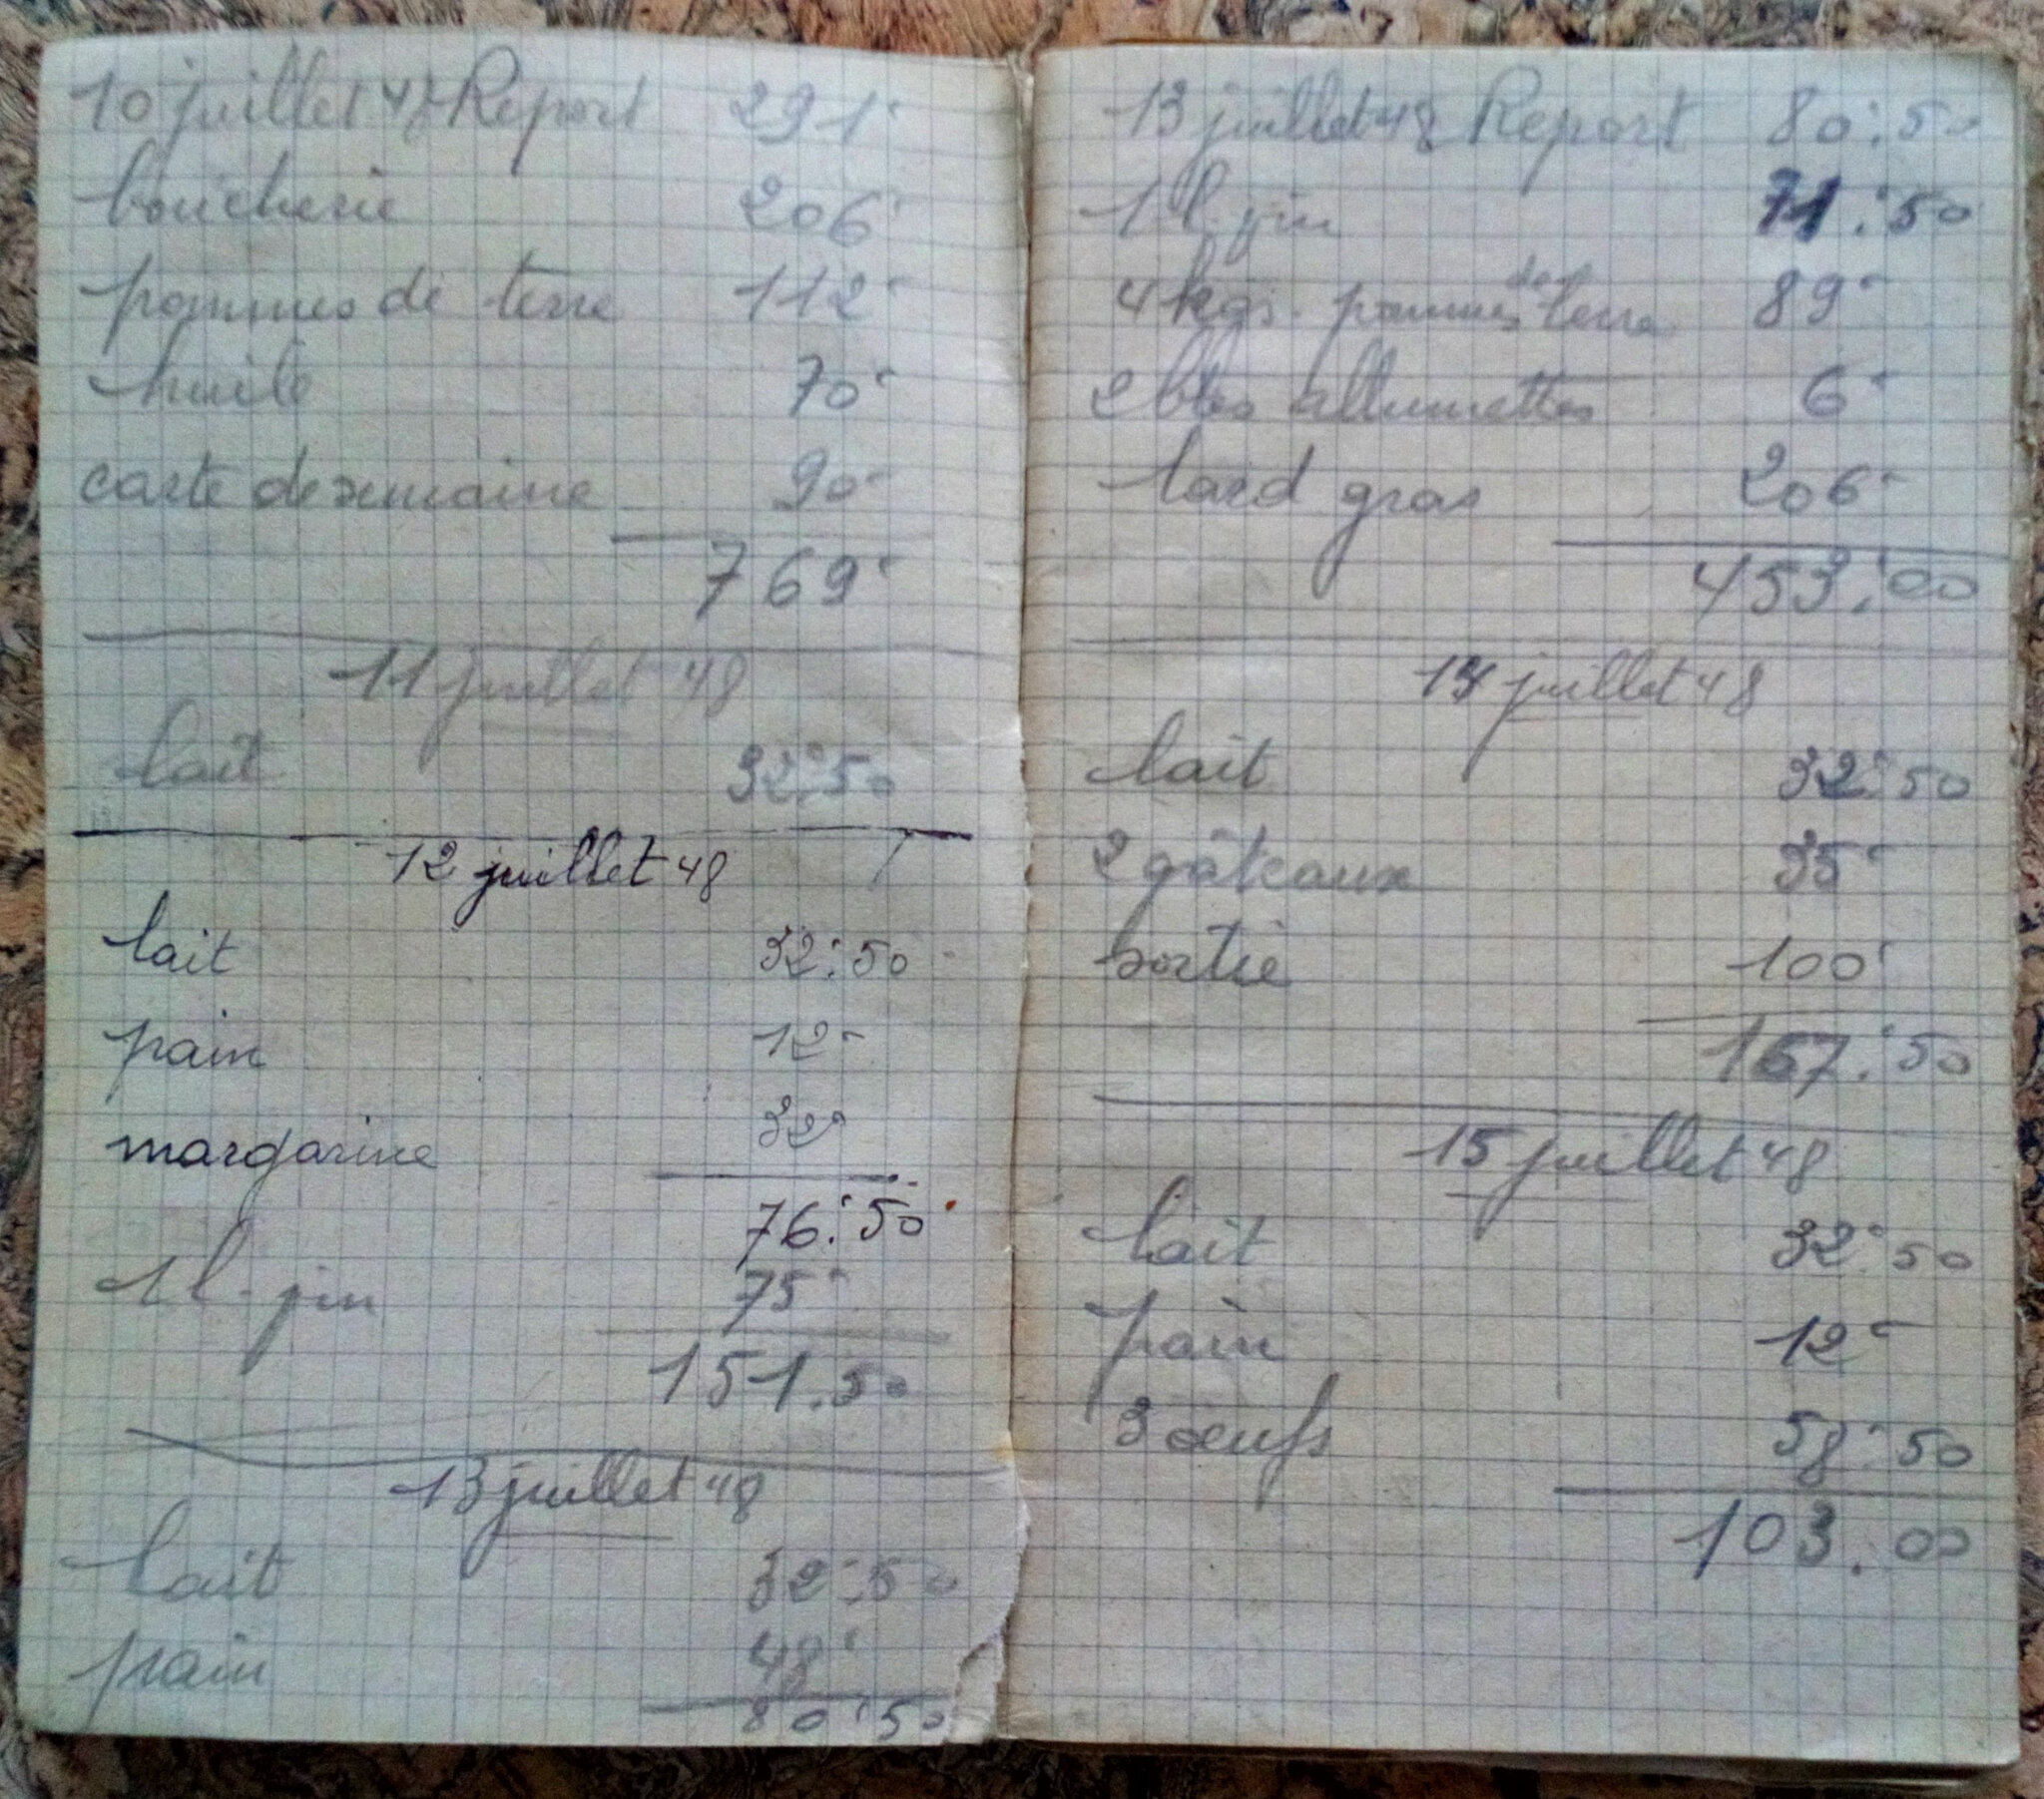 10 juillet 48 Report 291-
boucherie 206-
pommes de terre 112-
huile 70-
carte de semaine 90-
769-
11 juillet 48
lait 32:50
12 juillet 48
lait 32:50
pain 12-
margarine 32-
76:50
1 l. jin 75-
151.50
13 juillet 48
lait 32:50
pain 48-
80:50
13 juillet 48 Report 80:50
1 l. jin 71:50
4 kgs. pommes de terre 89-
2 btes allumettes 6-
lard gras 206-
453:00
14 juillet 48
lait 32:50
2 gâteaux 35-
sortie 100-
167:50
15 juillet 48
lait 32:50
pain 12-
3 œufs 58:50
103.00